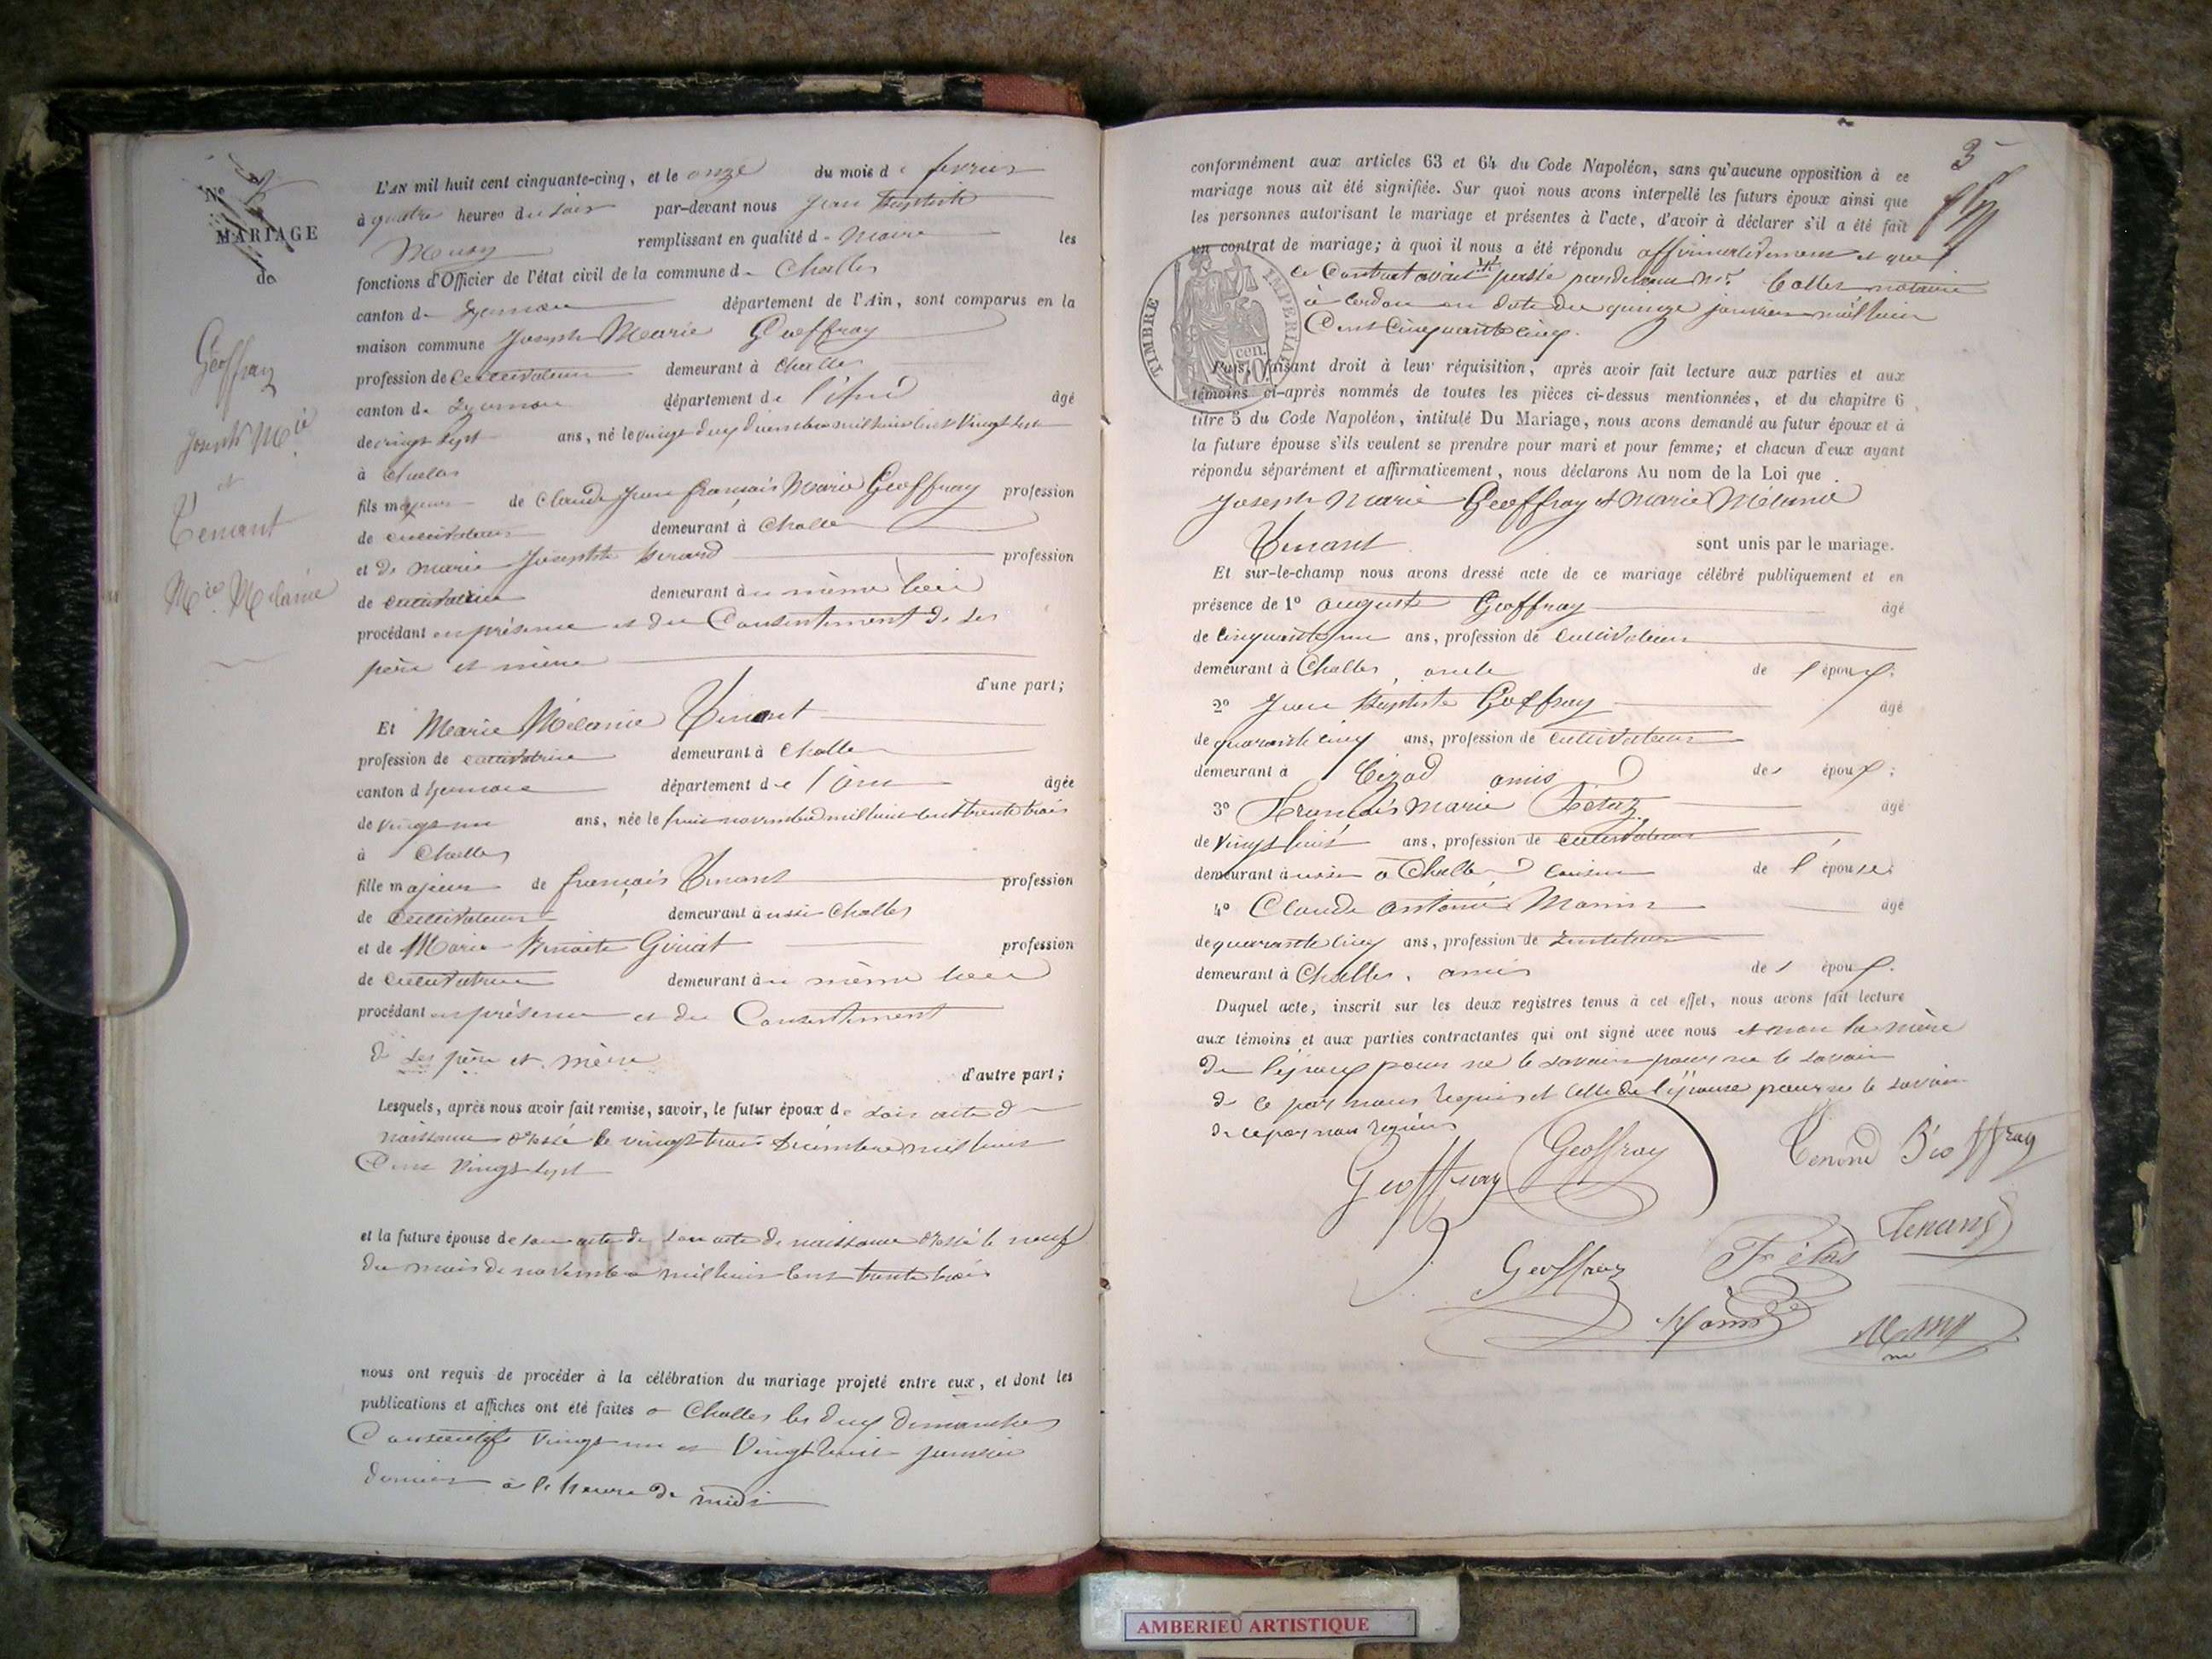 N° 3
MARIAGE
de
Geoffray
Joseph Mie
et
Tenant
Mie Mélanie
L'AN mil huit cent cinquante-cinq, et le onze du mois de février
à quatre heures du soir par-devant nous Jean Baptiste
remplissant en qualité de Maire les
fonctions d'Officier de l'état civil de la commune de Challes
canton d département de l'Ain, sont comparus en la
maison commune Joseph Marie Geoffray
profession de cultivateur demeurant à Challes
canton de département de l'Ain âgé
de vingt sept ans, né le vingt deux décembre mil huit cent vingt sept
à Challes
fils majeur de Claude Jean François Marie Geoffray profession
de cultivateur demeurant à Challes
et de Marie Josephte profession
de cultivatrice demeurant au même lieu
procédant en présence et du Consentement de ses
père et mère
d'une part;
Et Marie Mélanie Tenant
profession de cultivatrice demeurant à Challes
canton d département de l'ain âgée
de vingt un ans, née le huit novembre mil huit cent trente trois
à Challes
fille majeure de françois Tenant profession
de cultivateur demeurant aussi Challes
et de Marie Benoite Giriat profession
de cultivatrice demeurant au même lieu
procédant en présence et du Consentement
de ses père et mère
d'autre part;
Lesquels, après nous avoir fait remise, savoir, le futur époux de son acte de
naissance dressé le vingt trois décembre mil huit
Cent vingt sept
et la future épouse de son acte de son acte de naissance dressé le neuf
du mois de novembre mil huit cent trente trois
nous ont requis de procéder à la célébration du mariage projeté entre eux, et dont les
publications et affiches ont été faites à Challes les deux dimanches
Consécutifs vingt un et vingt huit janvier
dernier à l'heure de midi
3
conformément aux articles 63 et 64 du Code Napoléon, sans qu'aucune opposition à ce
mariage nous ait été signifiée. Sur quoi nous avons interpellé les futurs époux ainsi que
les personnes autorisant le mariage et présentes à l'acte, d'avoir à déclarer s'il a été fait
un contrat de mariage; à quoi il nous a été répondu affirmativement et que
ce Contrat avait été passé pardevant Me notaire
à Cerdon en date du quinze janvier mil huit
Cent Cinquante cinq.
TIMBRE IMPERIAL
70 cen.
Puis, faisant droit à leur réquisition, après avoir fait lecture aux parties et aux
témoins ci-après nommés de toutes les pièces ci-dessus mentionnées, et du chapitre 6
titre 5 du Code Napoléon, intitulé Du Mariage, nous avons demandé au futur époux et à
la future épouse s'ils veulent se prendre pour mari et pour femme; et chacun d'eux ayant
répondu séparément et affirmativement, nous déclarons Au nom de la Loi que
Joseph Marie Geoffray et Marie Mélanie
Tenant sont unis par le mariage.
Et sur-le-champ nous avons dressé acte de ce mariage célébré publiquement et en
présence de 1° auguste Geoffray âgé
de cinquante un ans, profession de cultivateur
demeurant à Challes, oncle de l'époux;
2° Jean Baptiste Geoffray âgé
de quarante cinq ans, profession de cultivateur
demeurant à amis de l époux;
3° François Marie Fétaz âgé
de vingt huit ans, profession de cultivateur
demeurant aussi à Challes cousin de l'épouse;
4° Claude antoine âgé
de quarante cinq ans, profession de instituteur
demeurant à Challes, amis de l époux.
Duquel acte, inscrit sur les deux registres tenus à cet effet, nous avons fait lecture
aux témoins et aux parties contractantes qui ont signé avec nous et non la mère
de l'époux pour ne le savoir pour ne le savoir
de ce par nous requis et celle de l'épouse pour ne le savoir
de ce par nous requis
Geoffray Geoffray Tenand Géoffray
Tenant
Geoffray Fétas
AMBERIEU ARTISTIQUE